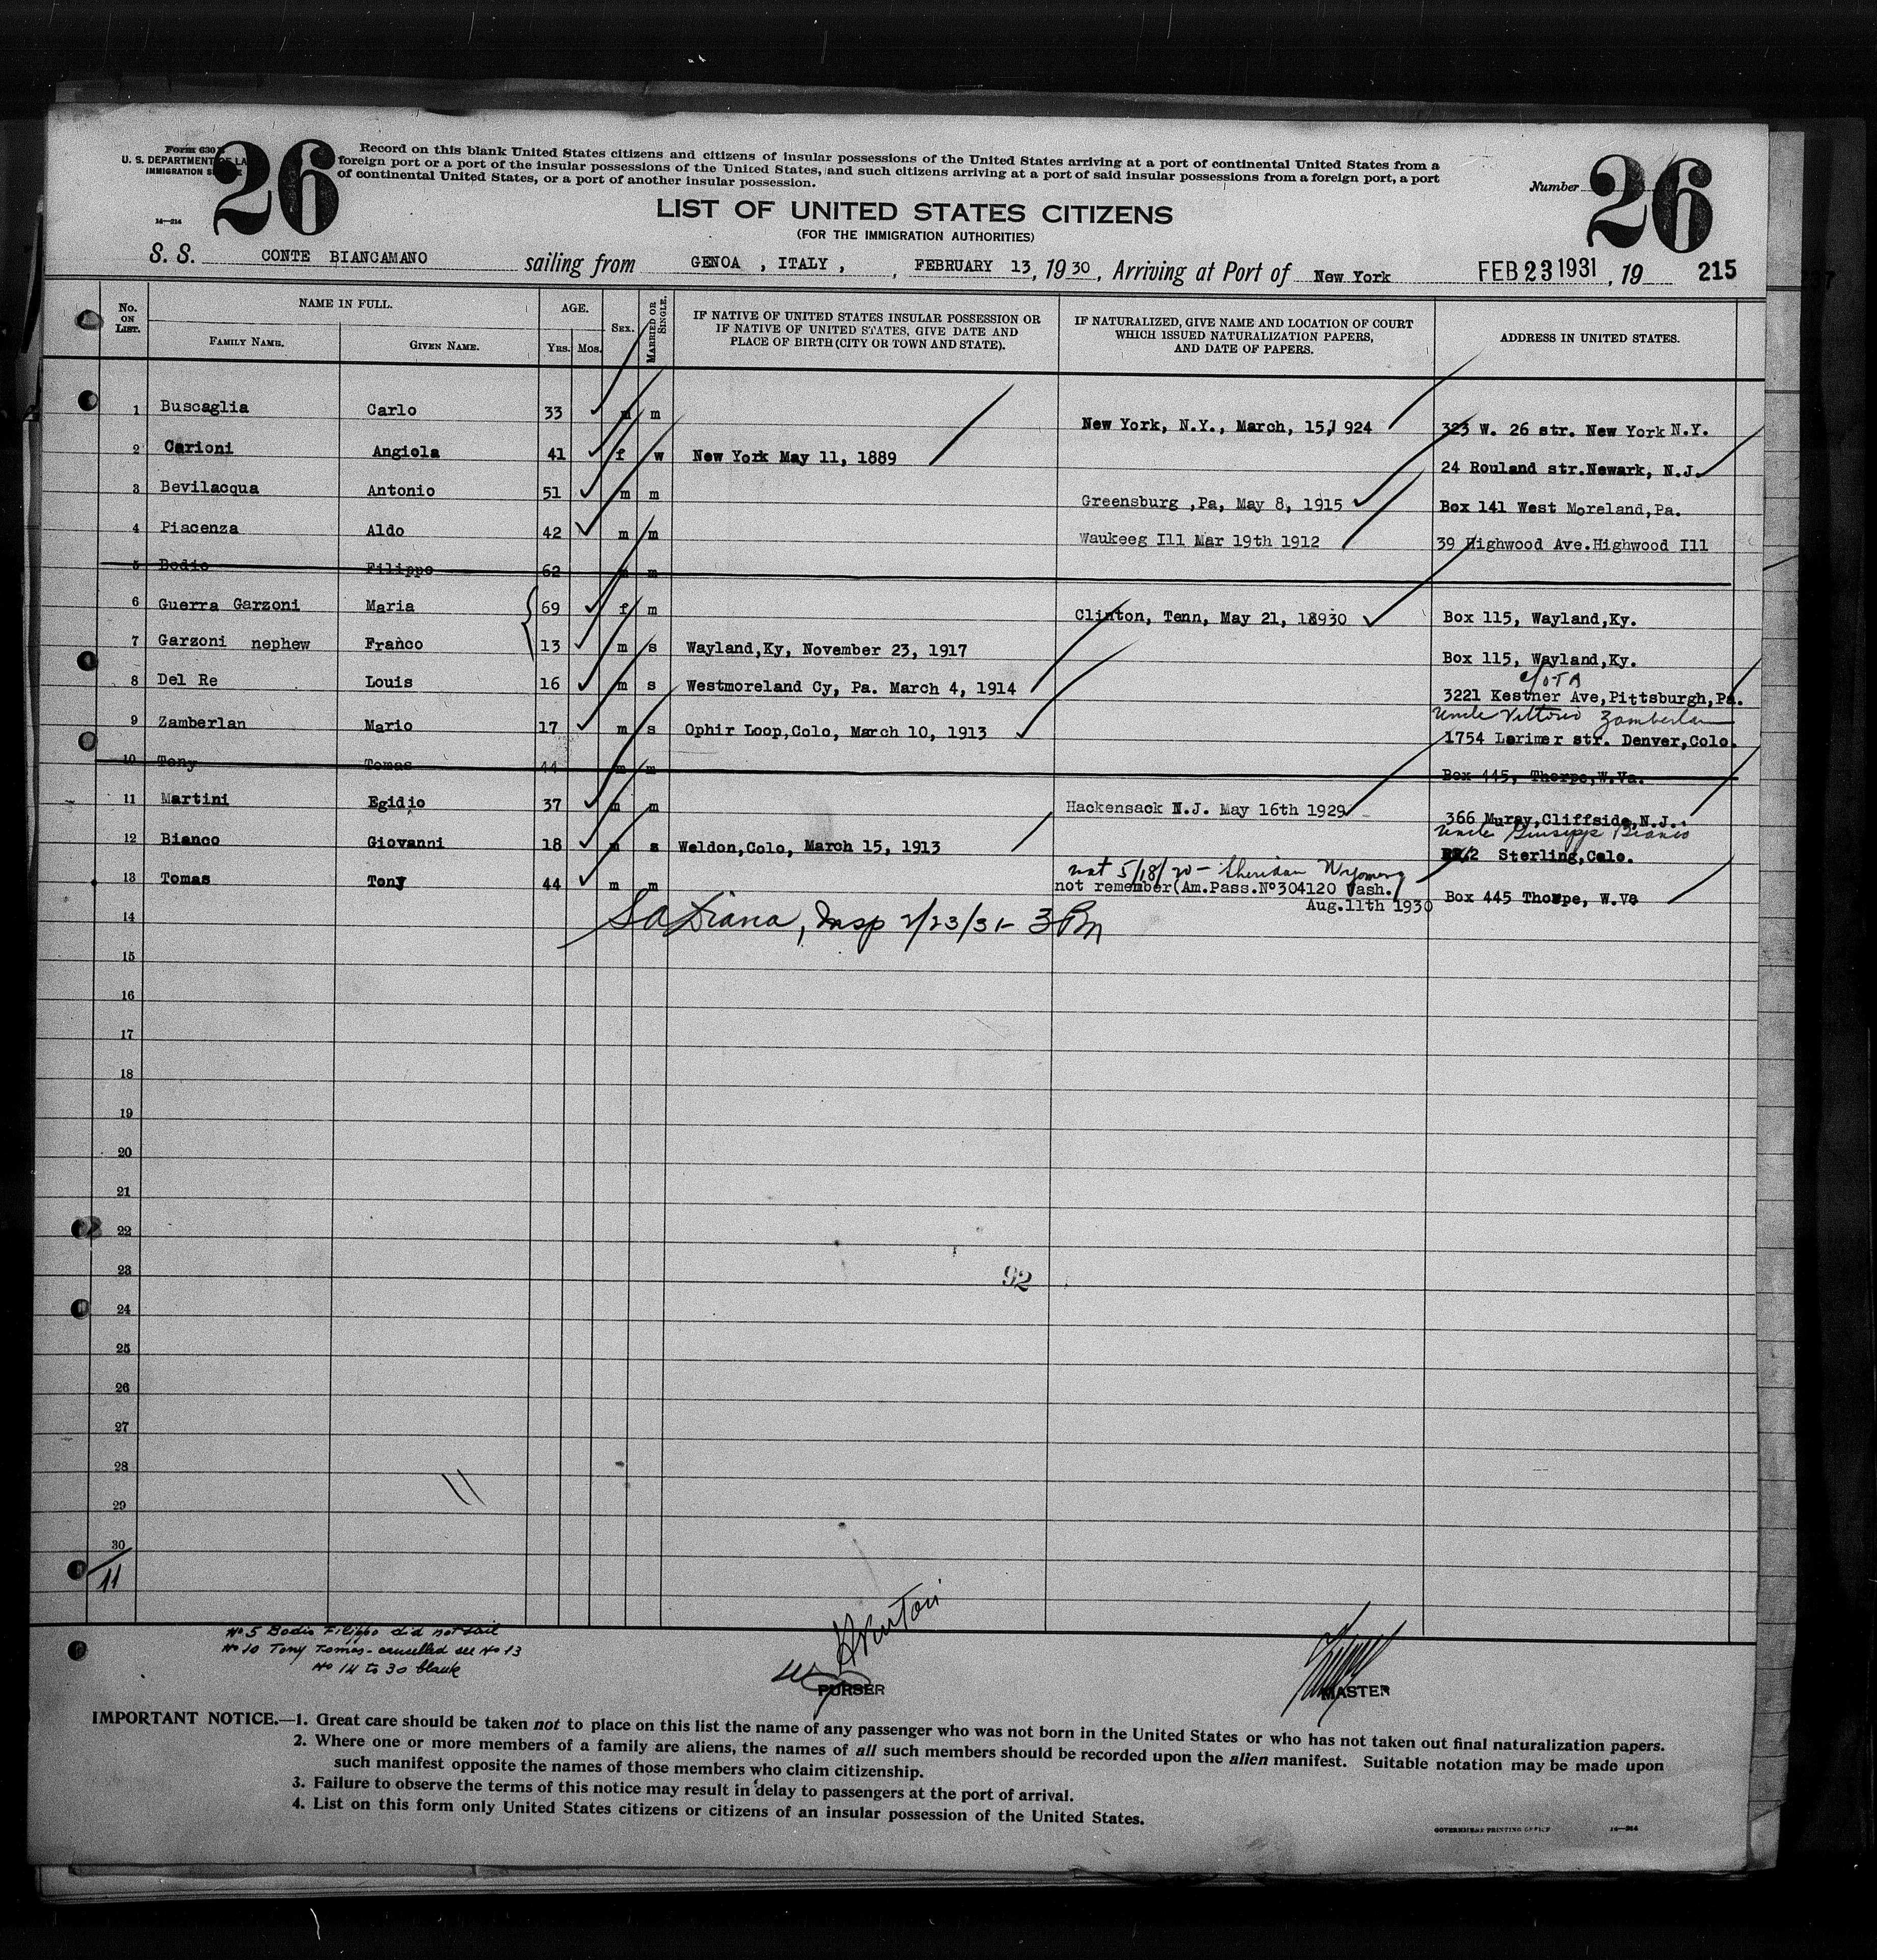 Form 630
U. S. DEPARTMENT OF LA
IMMIGRATION S
14—214
26
Record on this blank United States citizens and citizens of insular possessions of the United States arriving at a port of continental United States from a
foreign port or a port of the insular possessions of the United States, and such citizens arriving at a port of said insular possessions from a foreign port, a port
of continental United States, or a port of another insular possession.
Number 26
LIST OF UNITED STATES CITIZENS
(FOR THE IMMIGRATION AUTHORITIES)
S. S. CONTE BIANCAMANO sailing from GENOA , ITALY , , FEBRUARY 13, 1930, Arriving at Port of New York FEB 23 1931 , 19 215
No. ON LIST. NAME IN FULL. FAMILY NAME. GIVEN NAME. AGE. YRS. MOS. SEX. MARRIED OR SINGLE. IF NATIVE OF UNITED STATES INSULAR POSSESSION OR IF NATIVE OF UNITED STATES, GIVE DATE AND PLACE OF BIRTH (CITY OR TOWN AND STATE). IF NATURALIZED, GIVE NAME AND LOCATION OF COURT WHICH ISSUED NATURALIZATION PAPERS, AND DATE OF PAPERS. ADDRESS IN UNITED STATES.
1 Buscaglia Carlo 33 m m New York, N.Y., March, 15,1 924 323 W. 26 str. New York N.Y.
2 Carioni Angiola 41 f w New York May 11, 1889 24 Rouland str.Newark, N.J.
3 Bevilacqua Antonio 51 m m Greensburg ,Pa, May 8, 1915 Box 141 West Moreland,Pa.
4 Piacenza Aldo 42 m m Waukeeg Ill Mar 19th 1912 39 Highwood Ave.Highwood Ill
5 Bodio Filippo 62 m m
6 Guerra Garzoni Maria 69 f m Clinton, Tenn, May 21, 18930 Box 115, Wayland,Ky.
7 Garzoni nephew Franco 13 m s Wayland,Ky, November 23, 1917 Box 115, Wayland,Ky.
c/o T A
8 Del Re Louis 16 m s Westmoreland Cy, Pa. March 4, 1914 3221 Kestner Ave,Pittsburgh,Pa.
Uncle Vittorio Zamberlan
9 Zamberlan Mario 17 m s Ophir Loop,Colo, March 10, 1913 1754 Larimer str. Denver,Colo.
10 Tony Tomas 44 m m Box 445, Thorpe,W.Va.
11 Martini Egidio 37 m m Hackensack N.J. May 16th 1929 366 Muray,Cliffside,N.J.
Uncle Giuseppe Bianco
12 Bianco Giovanni 18 m s Weldon,Colo, March 15, 1913 Sterling,Colo.
nat 5/18/20 - Sheridan Wyoming
13 Tomas Tony 44 m m not remember(Am.Pass.Nº304120 Wash. Box 445 Thorpe, W.Va
Aug.11th 1930
Insp 2/23/31- 3 Pm
14
15
16
17
18
19
20
21
22
23
92
24
25
26
27
28
11
29
30
11
Nº 5 Bodio Filippo did not sail
Nº 10 Tony Tomas - cancelled see Nº 13
Nº 14 to 30 blank
PURSER
MASTER
IMPORTANT NOTICE.—1. Great care should be taken not to place on this list the name of any passenger who was not born in the United States or who has not taken out final naturalization papers.
2. Where one or more members of a family are aliens, the names of all such members should be recorded upon the alien manifest. Suitable notation may be made upon
such manifest opposite the names of those members who claim citizenship.
3. Failure to observe the terms of this notice may result in delay to passengers at the port of arrival.
4. List on this form only United States citizens or citizens of an insular possession of the United States.
GOVERNMENT PRINTING OFFICE 14—214